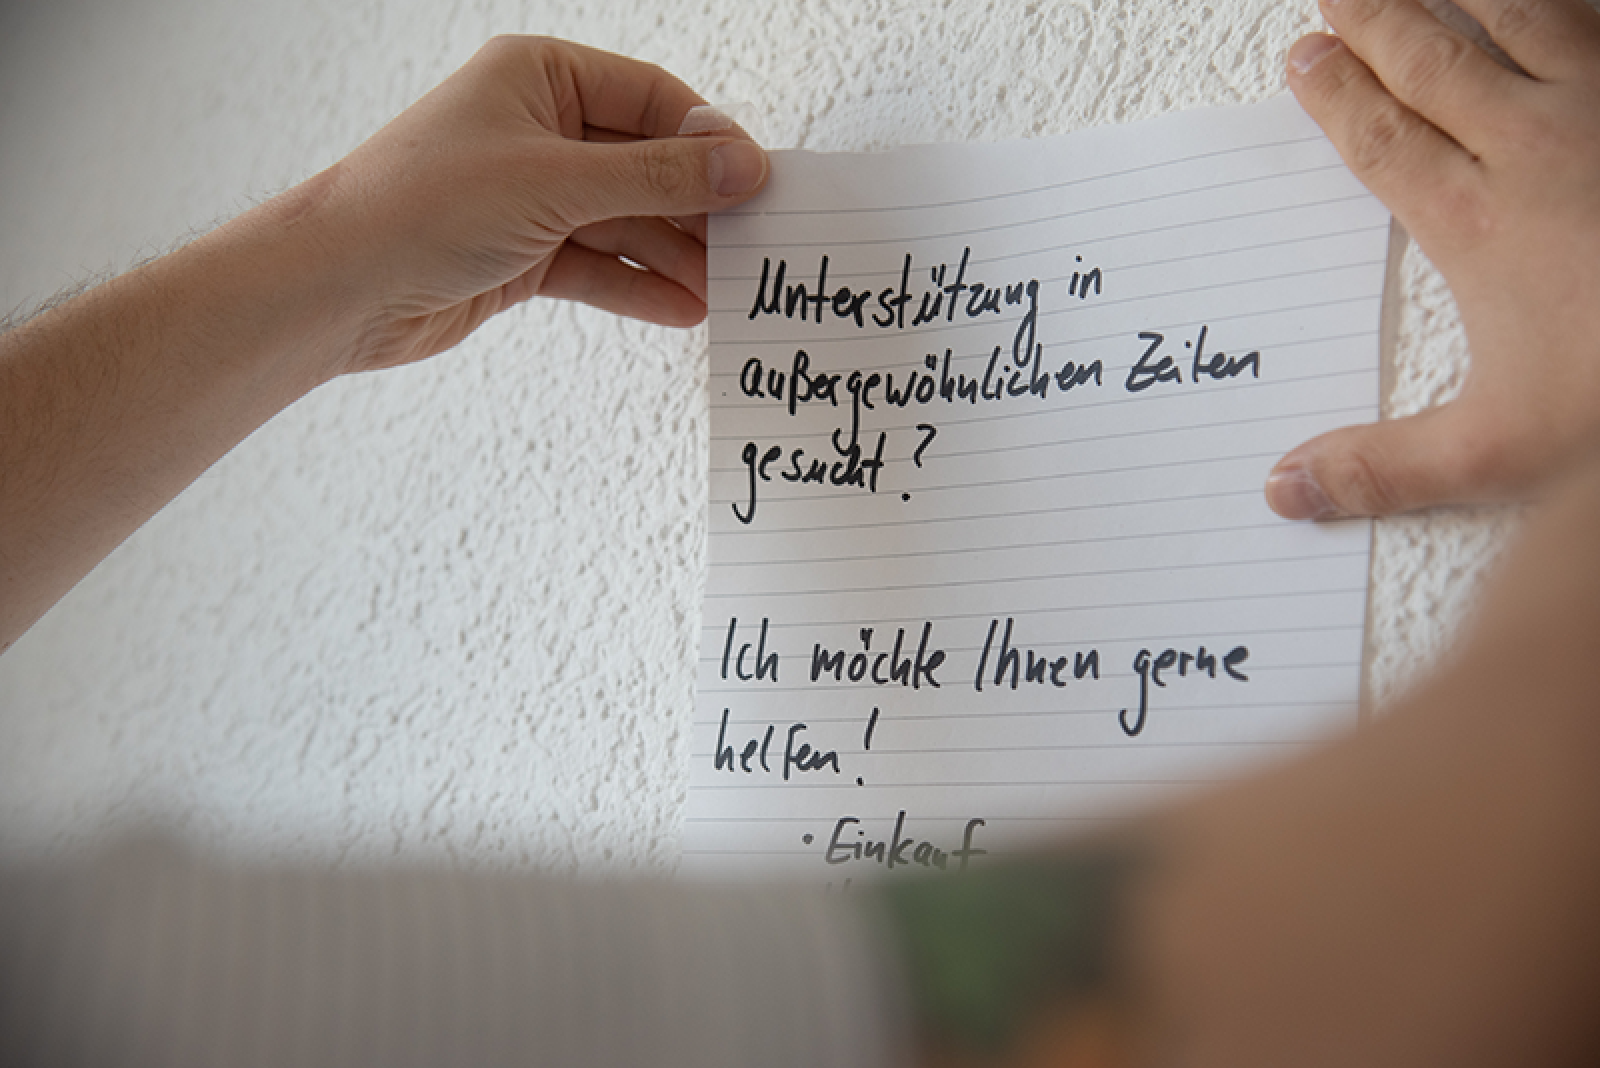 Unterstützung in
außergewöhnlichen Zeiten
gesucht?
Ich möchte Ihnen gerne
helfen!
· Einkauf